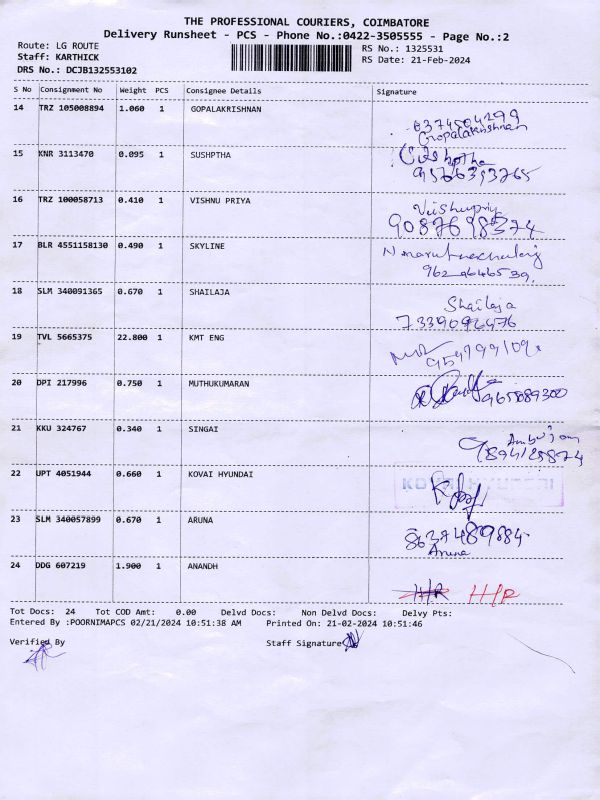 THE PROFESSIONAL COURIERS, COIMBATORE
Delivery Runsheet - PCS - Phone No.:0422-3505555 - Page No.:2
Route: LG ROUTE
RS No.: 1325531
Staff: KARTHICK
RS Date: 21-Feb-2024
DRS No.: DCJB132553102
S No Consignment No Weight PCS Consignee Details Signature
14 TRZ 105008894 1.060 1 GOPALAKRISHNAN
Gopalakrishnan
15 KNR 3113470 0.095 1 SUSHPTHA
Sushptha
16 TRZ 100058713 0.410 1 VISHNU PRIYA
Vishnupriy
9087698374
17 BLR 4551158130 0.490 1 SKYLINE
9629646539.
18 SLM 340091365 0.670 1 SHAILAJA
Shailaja
7339092476
19 TVL 5665375 22.800 1 KMT ENG
20 DPI 217996 0.750 1 MUTHUKUMARAN
21 KKU 324767 0.340 1 SINGAI
9894128874
22 UPT 4051944 0.660 1 KOVAI HYUNDAI
KOVAI HYUNDAI
23 SLM 340057899 0.670 1 ARUNA
8637489884
Aruna
24 DDG 607219 1.900 1 ANANDH
H/R H/R
Tot Docs: 24 Tot COD Amt: 0.00 Delvd Docs: Non Delvd Docs: Delvy Pts:
Entered By :POORNIMAPCS 02/21/2024 10:51:38 AM Printed On: 21-02-2024 10:51:46
Verified By Staff Signature